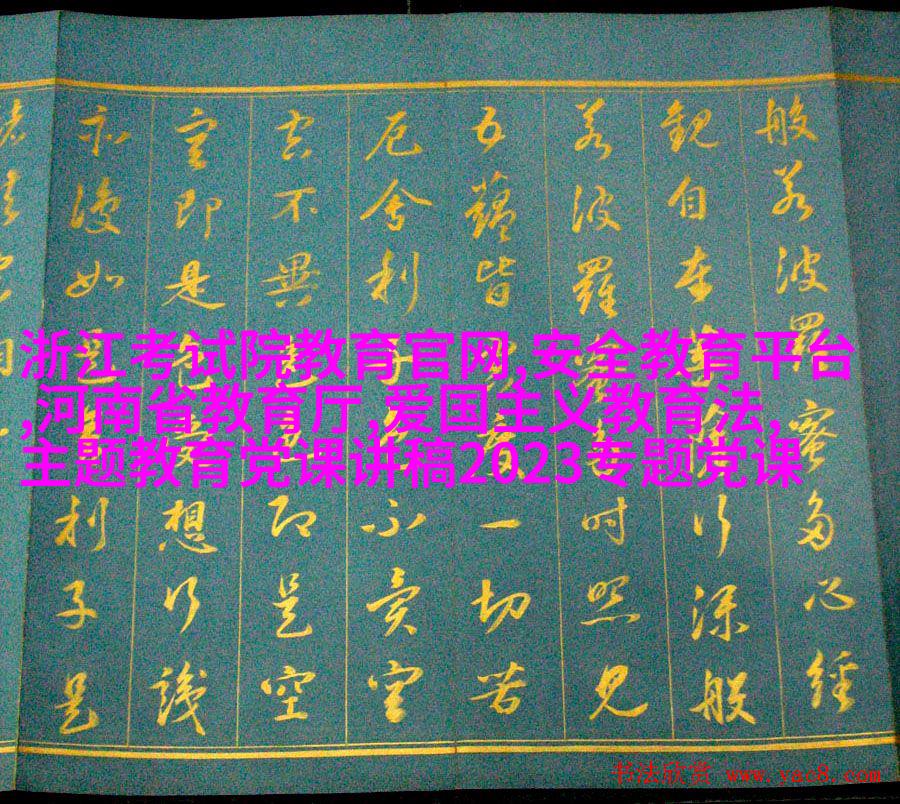 般若波羅蜜多心經
觀自在菩薩行深般
若波羅蜜多時照見
五蘊皆空度一切苦
厄舍利子色不異空
空不異色色即是空
空即是色受想行識
亦復如是舍利子是
浙江考试院教育官网,安全教育平台
,河南省教育厅,爱国主义教育法,
主题教育党课讲稿2023专题党课
书法欣赏 www.yac8.com